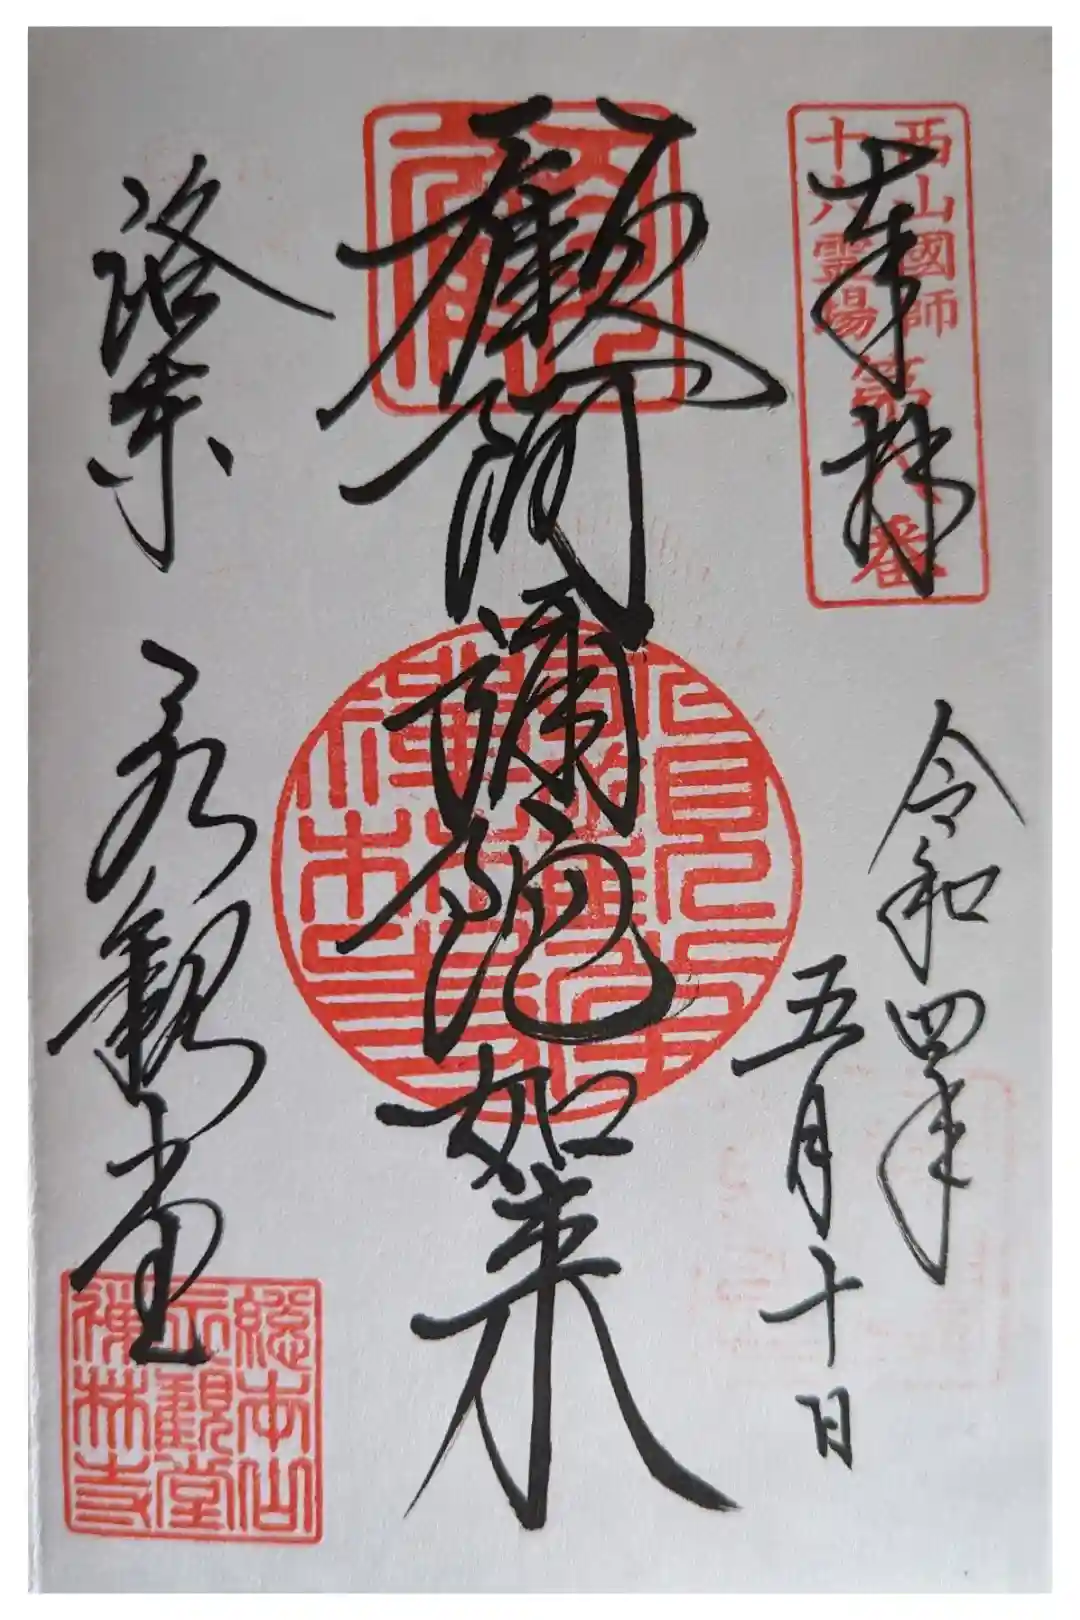 奉拝
西山國師
十六霊場
第八番
令和四年
五月十日
顧阿彌陀如来
洛東 永觀堂
総本山
永観堂
禅林寺